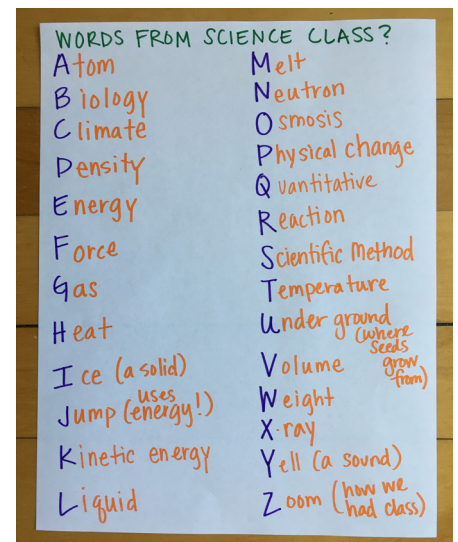 WORDS FROM SCIENCE CLASS?
Atom
Biology
Climate
Density
Energy
Force
Gas
Heat
Ice (a solid)
Jump (uses energy!)
Kinetic energy
Liquid
Melt
Neutron
Osmosis
Physical change
Quantitative
Reaction
Scientific Method
Temperature
Under ground
(where
seeds
grow
from)
Volume
Weight
X-ray
Yell (a sound)
Zoom (how we
had class)